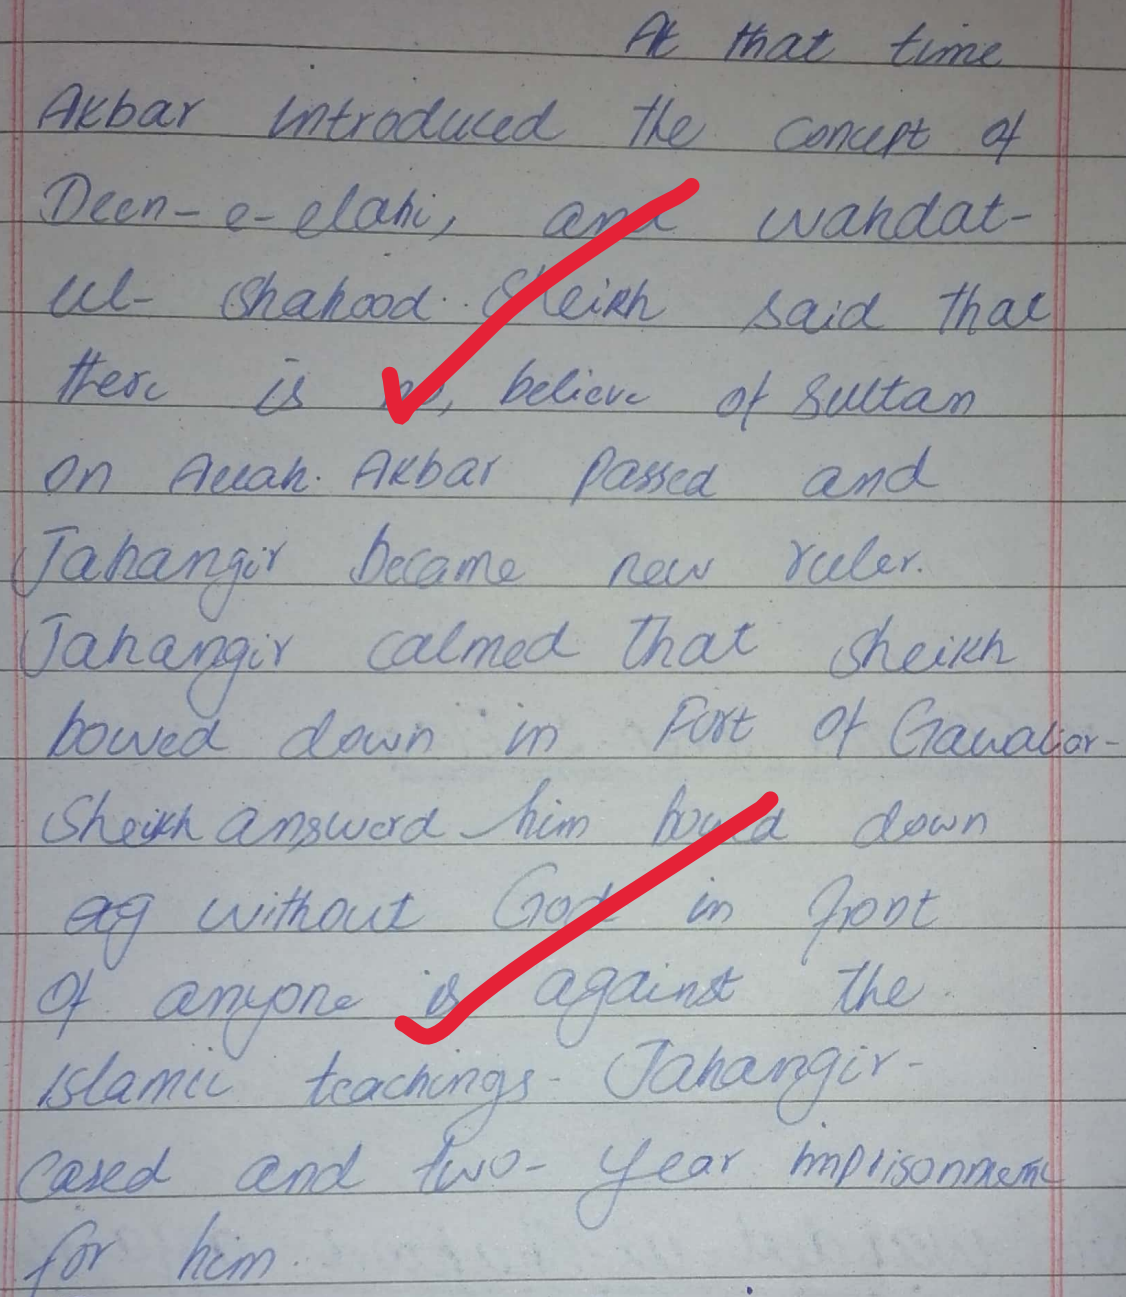 At that time
Akbar introduced the concept of
Deen-e-elahi, and wahdat-
ul-shahood. Sheikh said that
there is no, believe of Sultan
on Allah. Akbar passed and
Jahangir became new ruler.
Jahangir calmed that sheikh
bowed down in Fort of Gawalior-
Sheikh answerd him bowed down
without God in front
of anyone is against the
islamic teachings- Jahangir-
cased and two-year imprisonment
for him.